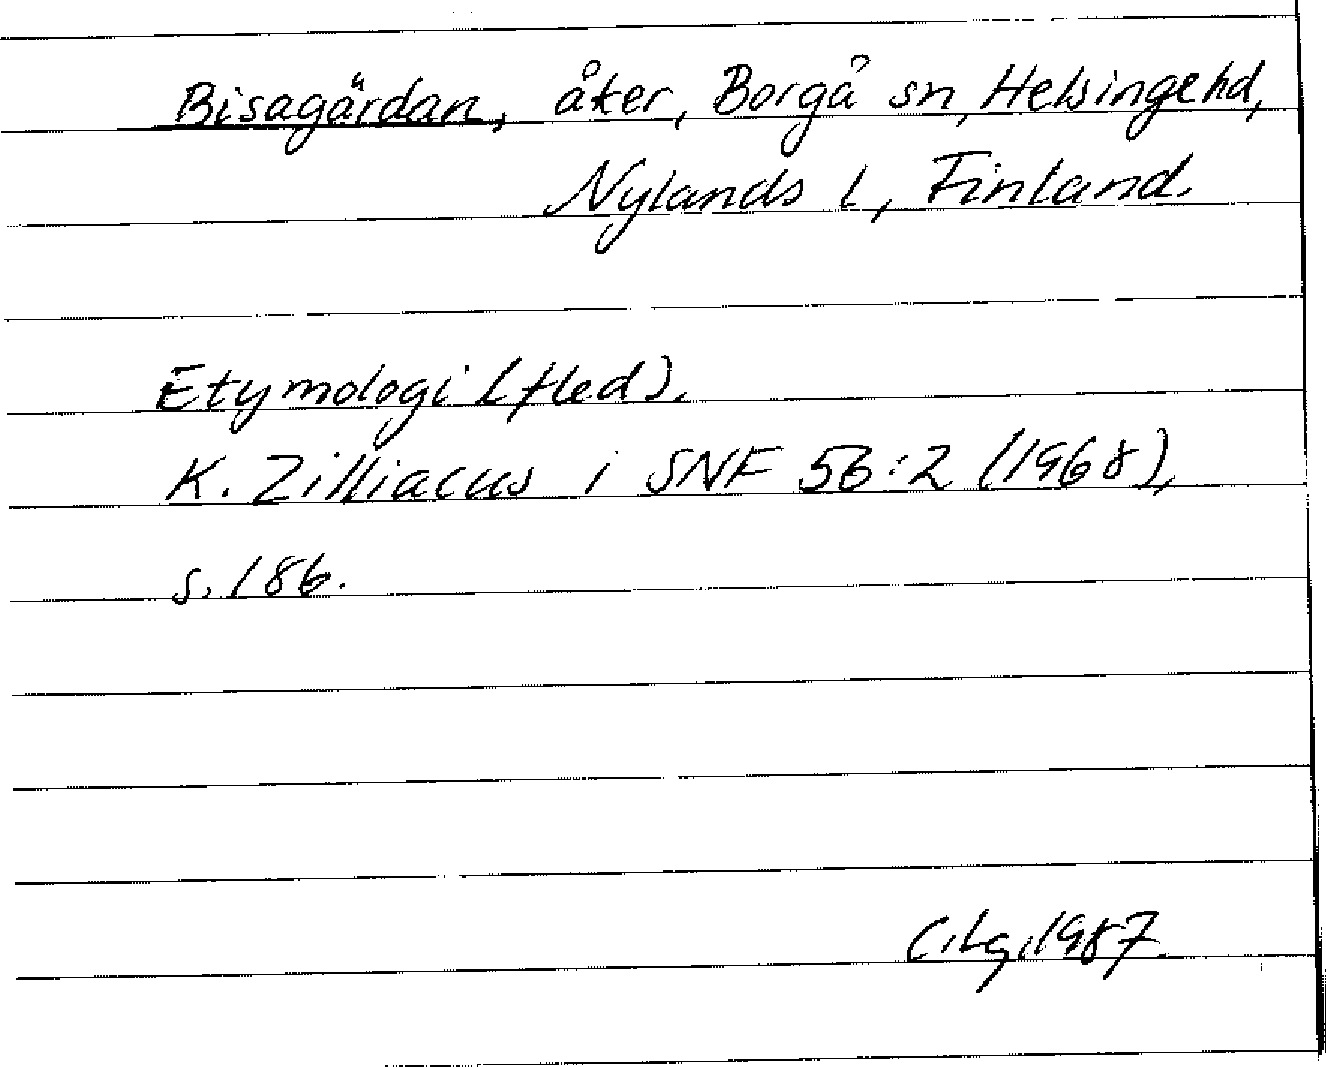 Bisagärdan, åker, Borgå sn, Helsinge hd,
Nylands l, Finland.
Etymologi (fled).
K. Zilliacus i SNF 56:2 (1968),
s. 186.
C.Lg.1987.